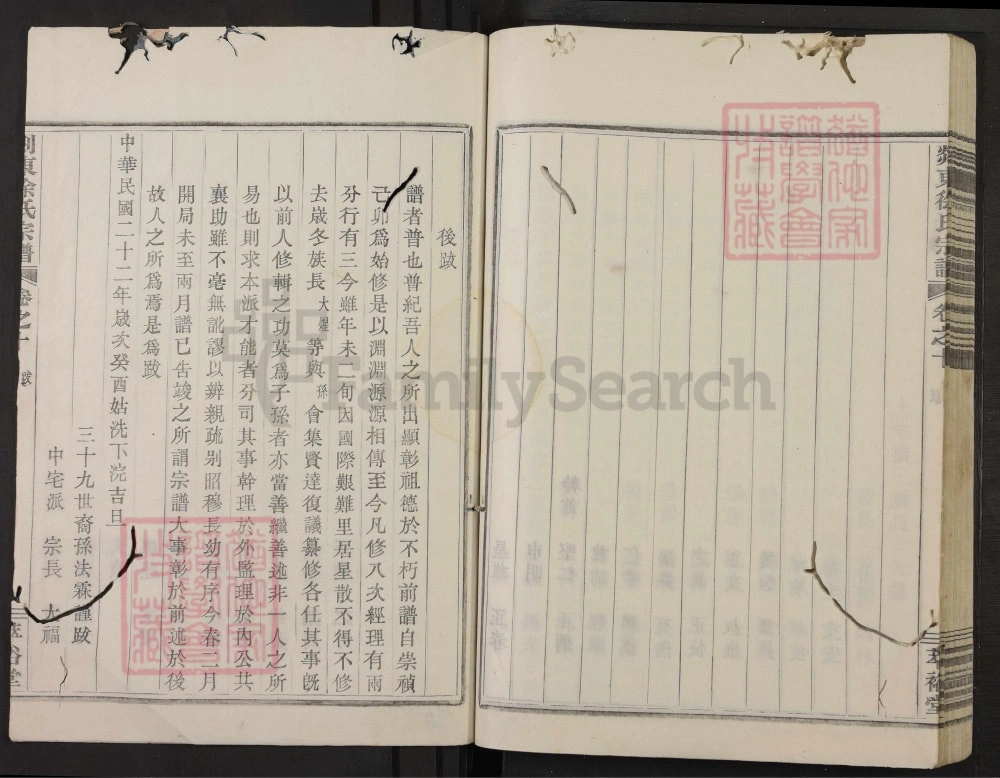 剡東徐氏宗譜
卷之一
跋
裕堂
後跋
譜者普也普紀吾人之所出顯彰祖德於不朽前譜自崇禎
己卯為始修是以淵淵源源相傳至今凡修八次經理有兩
分行有三今雖年未二旬因國際艱難里居星散不得不修
去歲冬族長大燿等與孫會集賢達復議纂修各任其事既
以前人修輯之功莫為子孫者亦當善繼善述非一人之所
易也則求本派才能者分司其事幹理於外監理於內公共
襄助雖不毫無訛謬以辨親疏别昭穆長幼有序今春二月
開局未至兩月譜已告竣之所謂宗譜大事彰於前述於後
故人之所為焉是為跋
中華民國二十二年歲次癸酉姑洗下浣吉旦
三十九世裔孫法霖謹跋
中宅派 宗長 大福
剡東徐氏宗譜
卷之一
跋
裕堂
FamilySearch